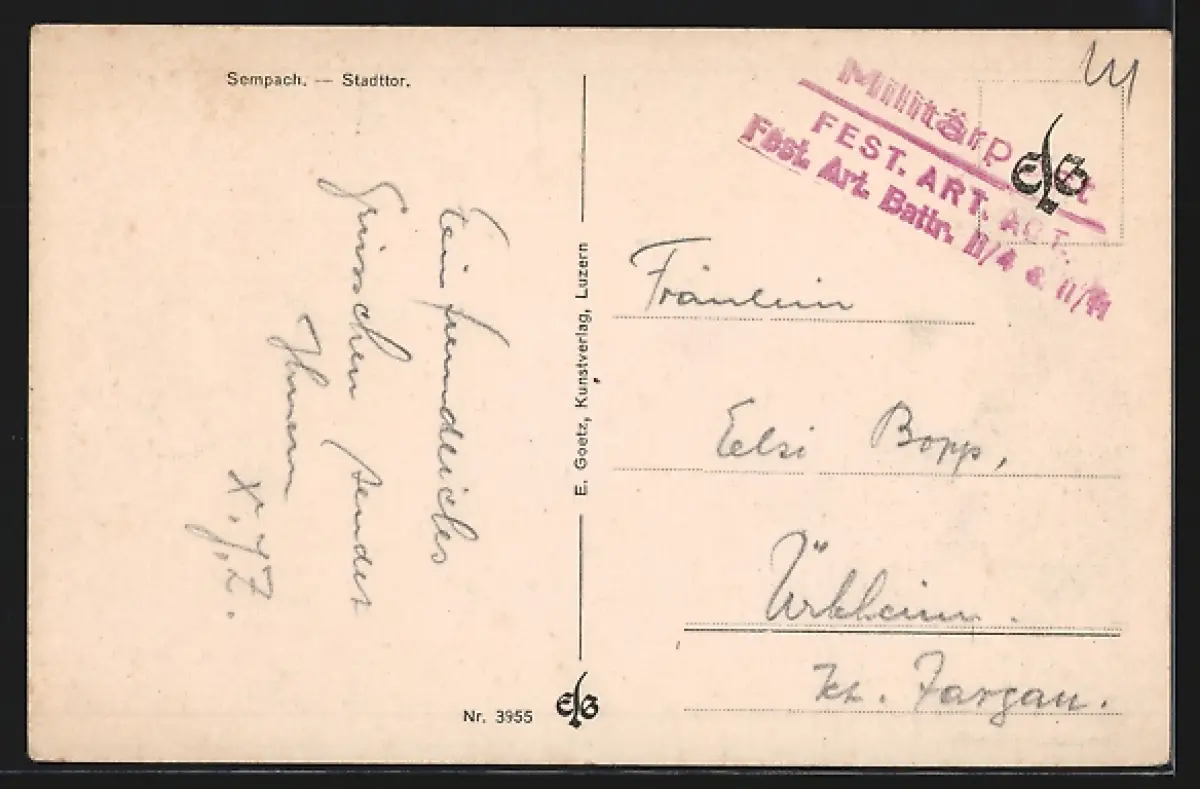 Sempach. — Stadttor.
Ein freundliches
Grüsschen sendet
Ihnen
X. Y. Z.
E. Goetz, Kunstverlag, Luzern
Nr. 3955
EG
Militärpost
FEST. ART. ABT.
Fest. Art. Battr. II/4 &
EG
Fräulein
Elsi Bopp,
Ürkheim.
Kt. Aargau.